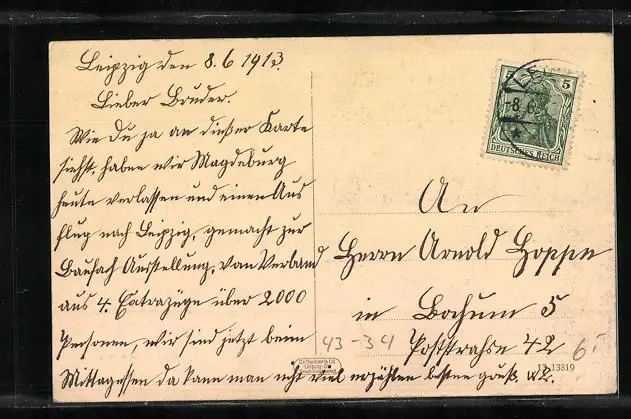 Leipzig den 8.6 1913.
Lieber Bruder.
Wie Du ja an dießer Karte
siehst, haben wir Magdeburg
heute verlassen und einen Aus
flug nach Leipzig, gemacht zur
Baufach Ausstellung, vom Verband
aus 4. Extrazüge über 2000
Personen, wir sind jetzt beim
Mittagessen da kann man nicht viel erzählen besten gruß.
5
8.6
DEUTSCHES REICH
An
Herrn Arnold Hoppe
in Bochum 5
Poststraße 42
43-34
6
13 13819